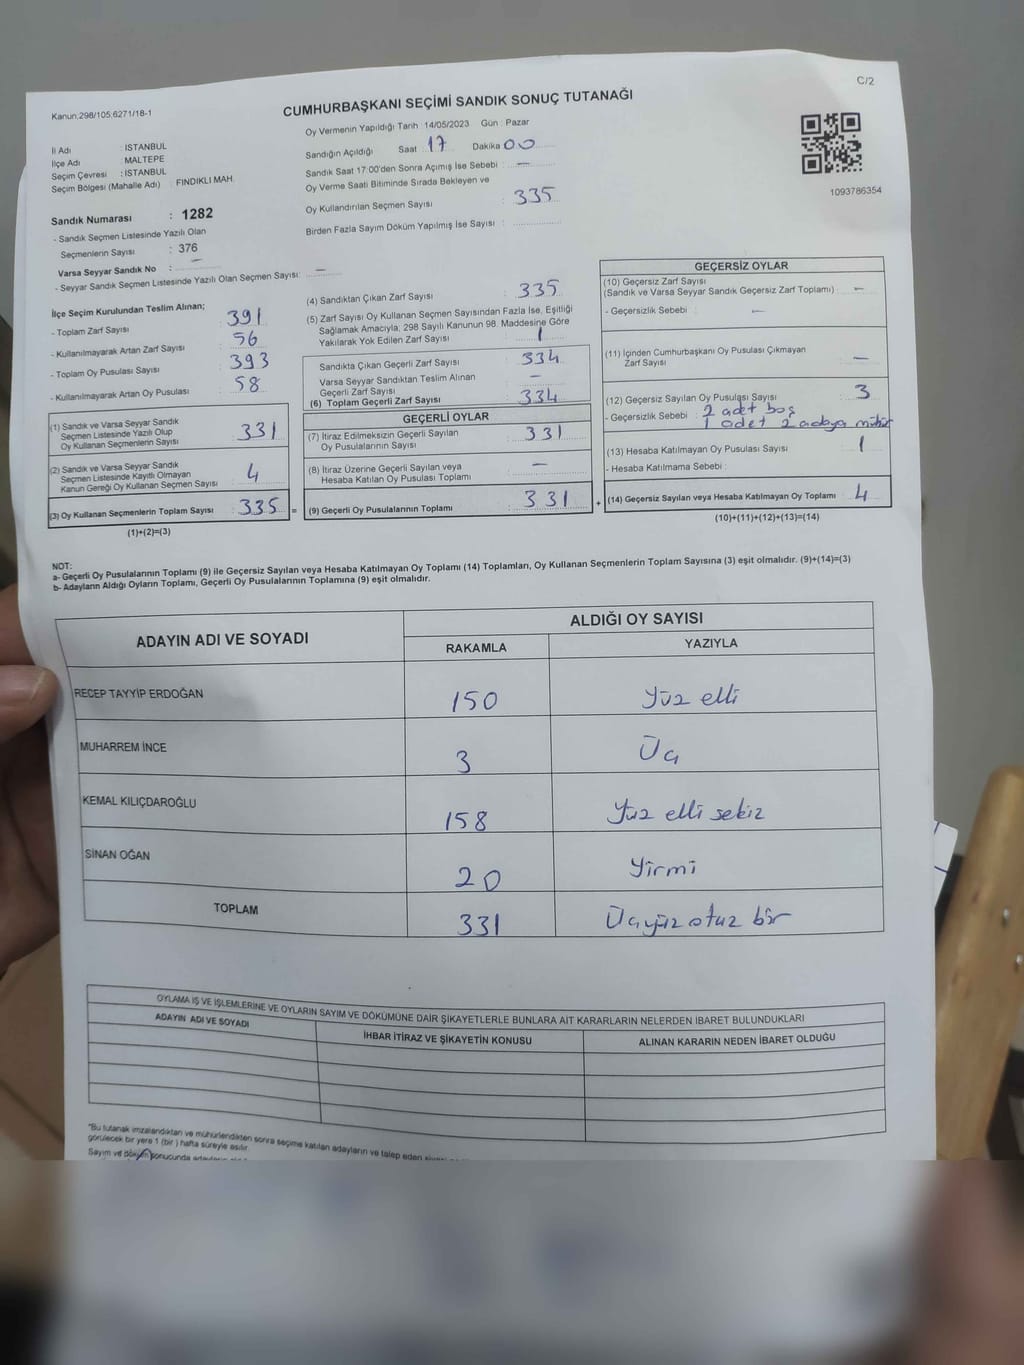 C/2
Kanun:298/105.6271/18-1
CUMHURBAŞKANI SEÇİMİ SANDIK SONUÇ TUTANAĞI
Oy Vermenin Yapıldığı Tarih :14/05/2023 Gün : Pazar
İl Adı : İSTANBUL
İlçe Adı : MALTEPE
Seçim Çevresi : İSTANBUL
Seçim Bölgesi (Mahalle Adı) : FINDIKLI MAH.
Sandığın Açıldığı Saat : 17 Dakika 00
Sandık Saat 17:00'den Sonra Açımış İse Sebebi : —
Oy Verme Saati Bitiminde Sırada Bekleyen ve
Oy Kullandırılan Seçmen Sayısı : 335
Birden Fazla Sayım Döküm Yapılmış İse Sayısı :
1093786354
Sandık Numarası : 1282
- Sandık Seçmen Listesinde Yazılı Olan
Seçmenlerin Sayısı : 376
Varsa Seyyar Sandık No : —
- Seyyar Sandık Seçmen Listesinde Yazılı Olan Seçmen Sayısı: —
İlçe Seçim Kurulundan Teslim Alınan;
- Toplam Zarf Sayısı : 391
- Kullanılmayarak Artan Zarf Sayısı : 56
- Toplam Oy Pusulası Sayısı : 393
- Kullanılmayarak Artan Oy Pusulası : 58
(1) Sandık ve Varsa Seyyar Sandık
Seçmen Listesinde Yazılı Olup
Oy Kullanan Seçmenlerin Sayısı : 331
(2) Sandık ve Varsa Seyyar Sandık
Seçmen Listesinde Kayıtlı Olmayan
Kanun Gereği Oy Kullanan Seçmen Sayısı : 4
(3) Oy Kullanan Seçmenlerin Toplam Sayısı : 335 =
(1)+(2)=(3)
(4) Sandıktan Çıkan Zarf Sayısı : 335
(5) Zarf Sayısı Oy Kullanan Seçmen Sayısından Fazla İse, Eşitliği
Sağlamak Amacıyla; 298 Sayılı Kanunun 98. Maddesine Göre
Yakılarak Yok Edilen Zarf Sayısı : 1
Sandıkta Çıkan Geçerli Zarf Sayısı : 334
Varsa Seyyar Sandıktan Teslim Alınan
Geçerli Zarf Sayısı : —
(6) Toplam Geçerli Zarf Sayısı : 334
GEÇERLİ OYLAR
(7) İtiraz Edilmeksizin Geçerli Sayılan
Oy Pusulalarının Sayısı : 331
(8) İtiraz Üzerine Geçerli Sayılan veya
Hesaba Katılan Oy Pusulası Toplamı : —
(9) Geçerli Oy Pusulalarının Toplamı : 331 +
GEÇERSİZ OYLAR
(10) Geçersiz Zarf Sayısı
(Sandık ve Varsa Seyyar Sandık Geçersiz Zarf Toplamı) : —
- Geçersizlik Sebebi : —
(11) İçinden Cumhurbaşkanı Oy Pusulası Çıkmayan
Zarf Sayısı : —
(12) Geçersiz Sayılan Oy Pusulası Sayısı : 3
- Geçersizlik Sebebi : 2 adet boş
1 adet 2 adaya mühür
(13) Hesaba Katılmayan Oy Pusulası Sayısı : 1
- Hesaba Katılmama Sebebi :
(14) Geçersiz Sayılan veya Hesaba Katılmayan Oy Toplamı : 4
(10)+(11)+(12)+(13)=(14)
NOT:
a- Geçerli Oy Pusulalarının Toplamı (9) ile Geçersiz Sayılan veya Hesaba Katılmayan Oy Toplamı (14) Toplamları, Oy Kullanan Seçmenlerin Toplam Sayısına (3) eşit olmalıdır. (9)+(14)=(3)
b- Adayların Aldığı Oyların Toplamı, Geçerli Oy Pusulalarının Toplamına (9) eşit olmalıdır.
ADAYIN ADI VE SOYADI
ALDIĞI OY SAYISI
RAKAMLA YAZIYLA
RECEP TAYYİP ERDOĞAN 150 Yüz elli
MUHARREM İNCE 3 Üç
KEMAL KILIÇDAROĞLU 158 Yüz elli sekiz
SİNAN OĞAN 20 Yirmi
TOPLAM 331 Üçyüz otuz bir
OYLAMA İŞ VE İŞLEMLERİNE VE OYLARIN SAYIM VE DÖKÜMÜNE DAİR ŞİKAYETLERLE BUNLARA AİT KARARLARIN NELERDEN İBARET BULUNDUKLARI
ADAYIN ADI VE SOYADI İHBAR İTİRAZ VE ŞİKAYETİN KONUSU ALINAN KARARIN NEDEN İBARET OLDUĞU
*Bu tutanak imzalandıktan ve mühürlendikten sonra seçime katılan adayların ve talep eden
görülecek bir yere 1 (bir ) hafta süreyle asılır.
Sayım ve döküm sonucunda